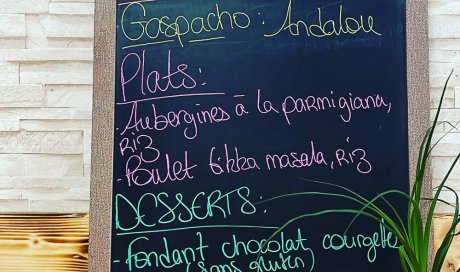 Gaspacho: Andalou
Plats:
- Aubergines à la parmigiana,
Riz
- Poulet tikka masala, Riz
DESSERTS:
- Fondant chocolat courgette
(sans gluten)